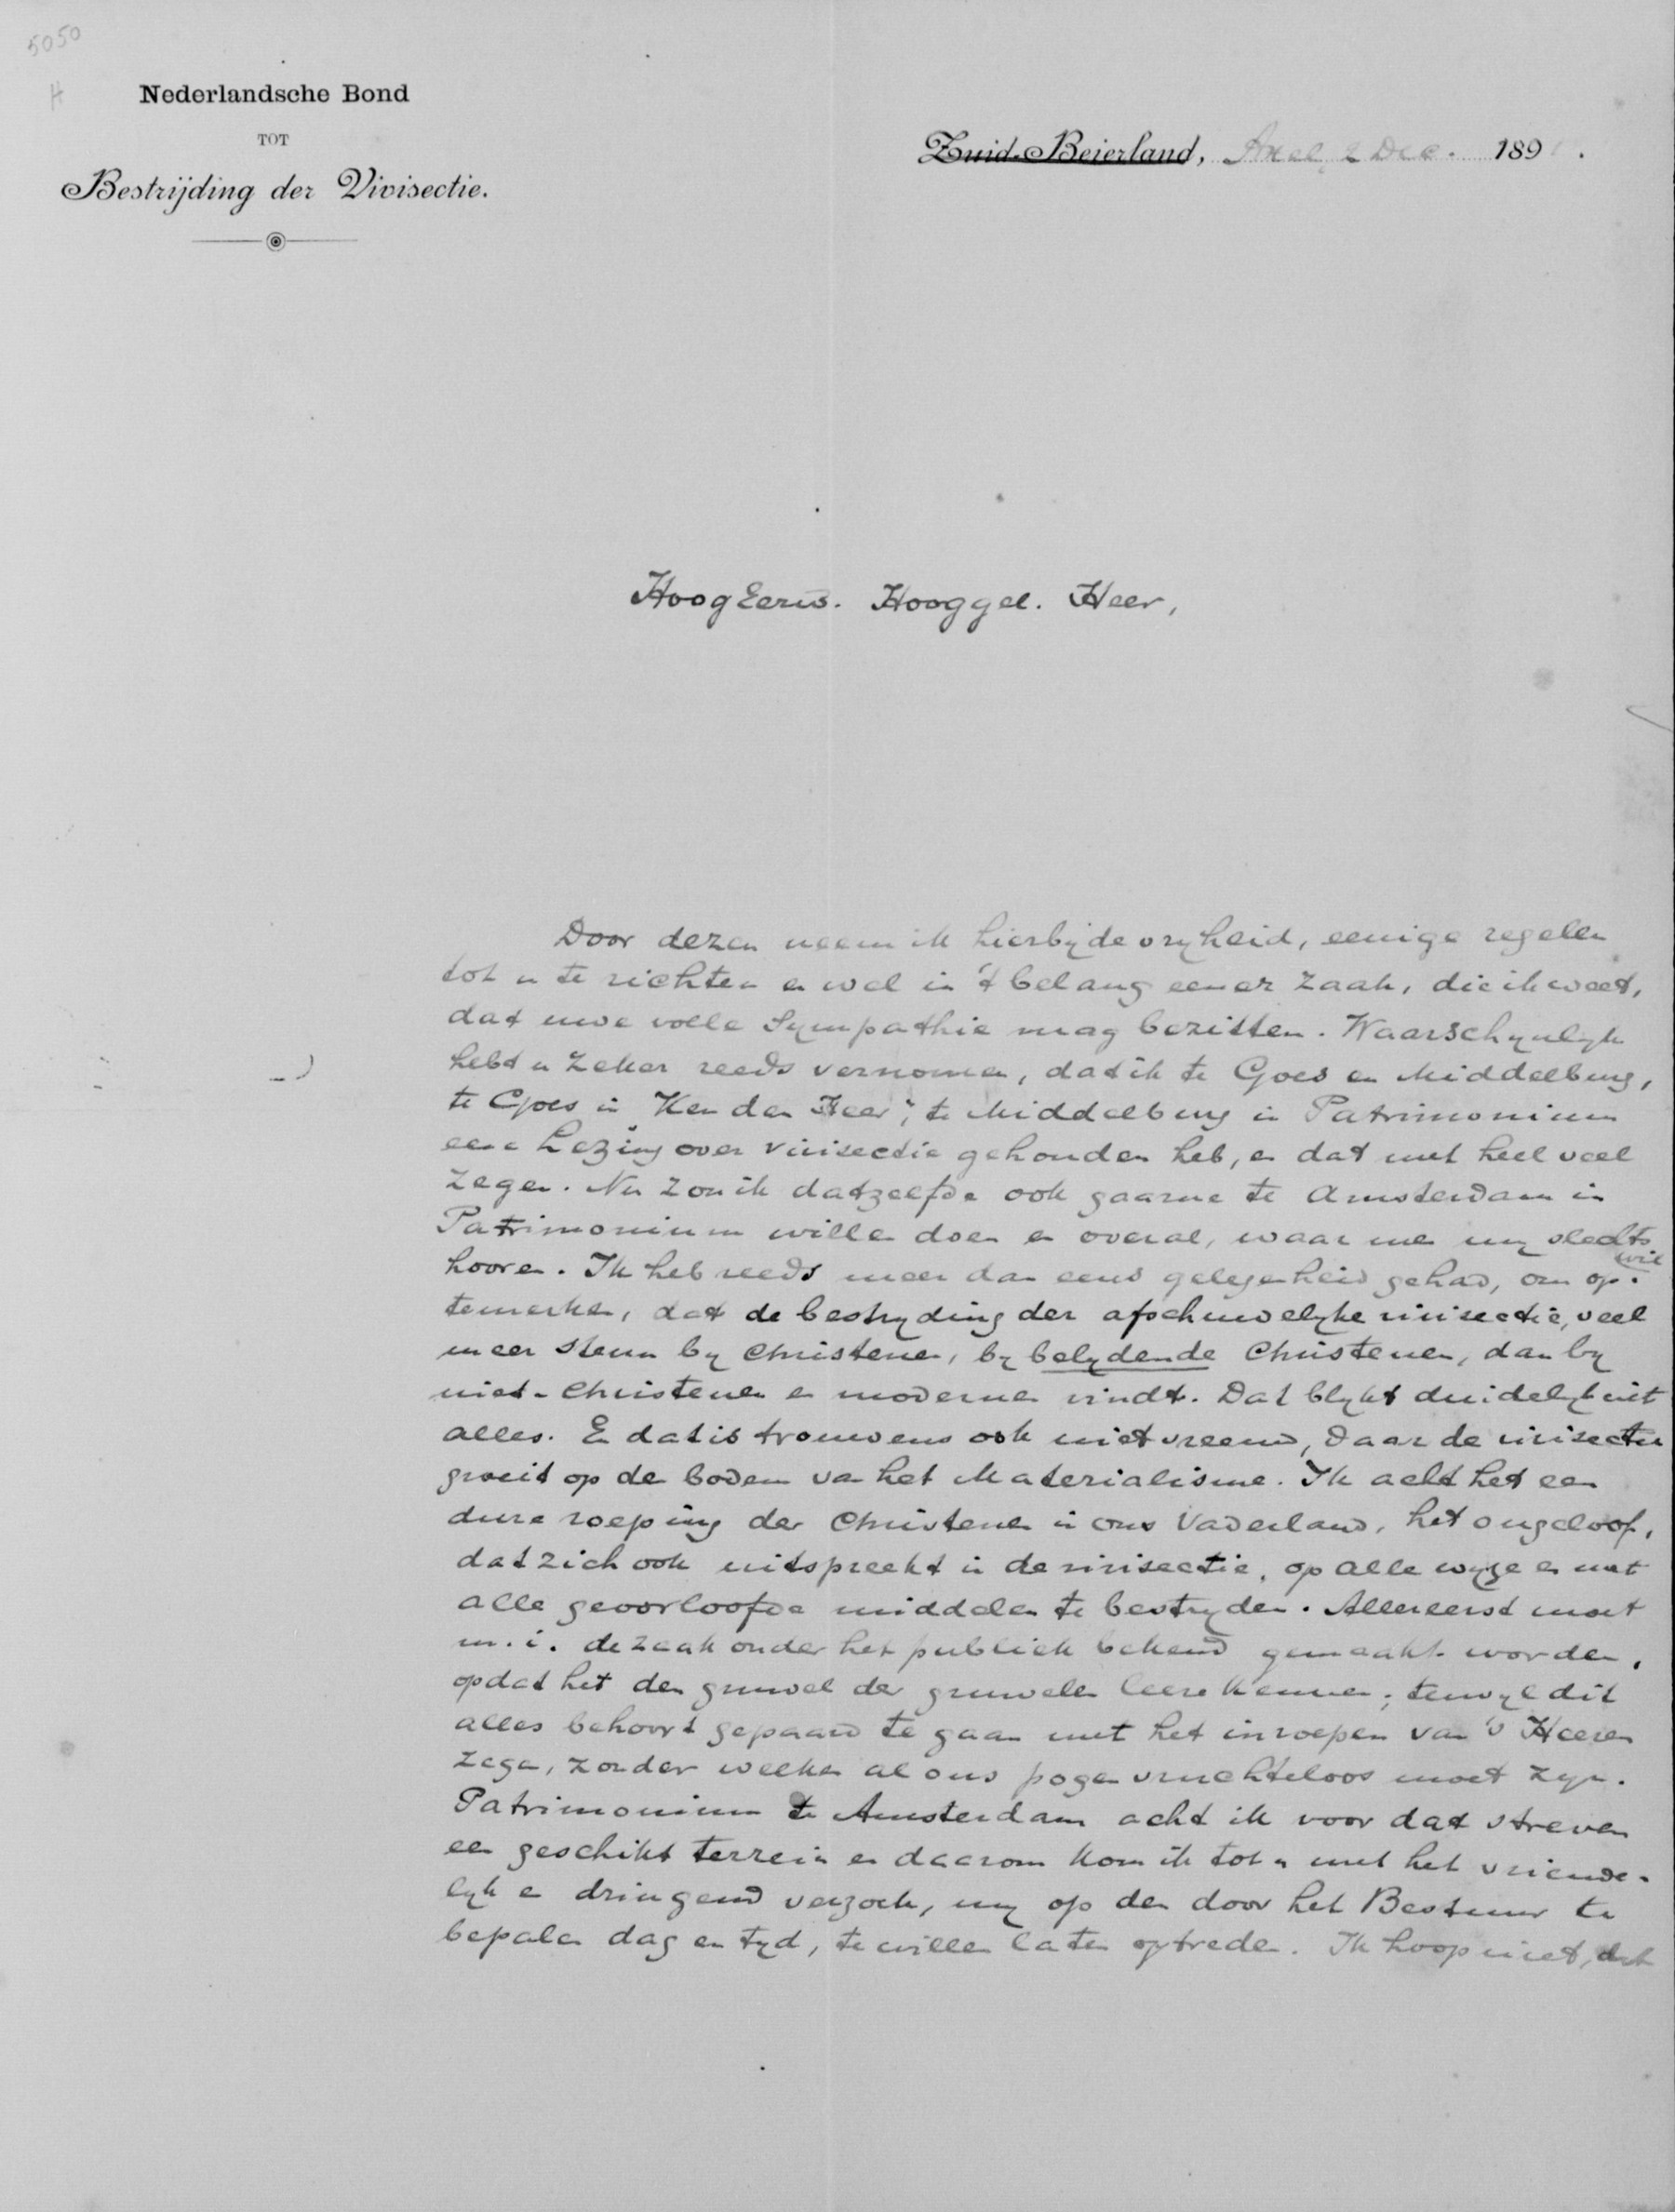 5050
H
Nederlandsche Bond
TOT
Bestrijding der Vivisectie.
Zuid-Beierland, Axel, 2 Dec. 189
HoogEerw. Hooggel. Heer,
Door dezen neem ik hierbij de vryheid, eenige regelen
tot u te richten en wel in 't belang eener zaak, die ik weet,
dat uwe volle Sympathie mag bezitten. Waarschynlyk
hebt u zeker reeds vernomen, dat ik te Goes en Middelburg,
te Goes in "Ken den Heer", te Middelburg in Patrimonium
eene Lezing over vivisectie gehouden heb, en dat met heel veel
zegen. Nu zou ik datzelfde ook gaarne te Amsterdam in
Patrimonium willen doen en overal, waar men my slechts
wil
hooren. Ik heb reeds meer dan eens gelegenheid gehad, om op
temerken, dat de bestryding der afschuwelyke vivisectie, veel
meer steun by Christenen, by belydende Christenen, dan by
niet-Christenen en modernen vindt. Dat blykt duidelyk uit
alles. En dat is trouwens ook niet vreemd, daar de vivisectie
groeit op de bodem van het Materialisme. Ik acht het een
dure roeping der Christenen in ons Vaderland, het ongeloof,
dat zich ook uitspreekt in de vivisectie, op alle wyze en met
alle geoorloofde middelen te bestryden. Allereerst moet
m. i. de zaak onder het publiek bekend gemaakt worden,
opdat het den gruwel der gruwelen leere kennen; terwyl dit
alles behoort gepaard te gaan met het inroepen van 's Heeren
zegen, zonder welken al ons pogen vruchteloos moet zyn.
Patrimonium te Amsterdam acht ik voor dat streven
een geschikt terrein en daarom kom ik tot u met het vriende-
lyk en dringend verzoek, my op den door het Bestuur te
bepalen dag en tyd, te willen laten optreden. Ik hoop niet, dat